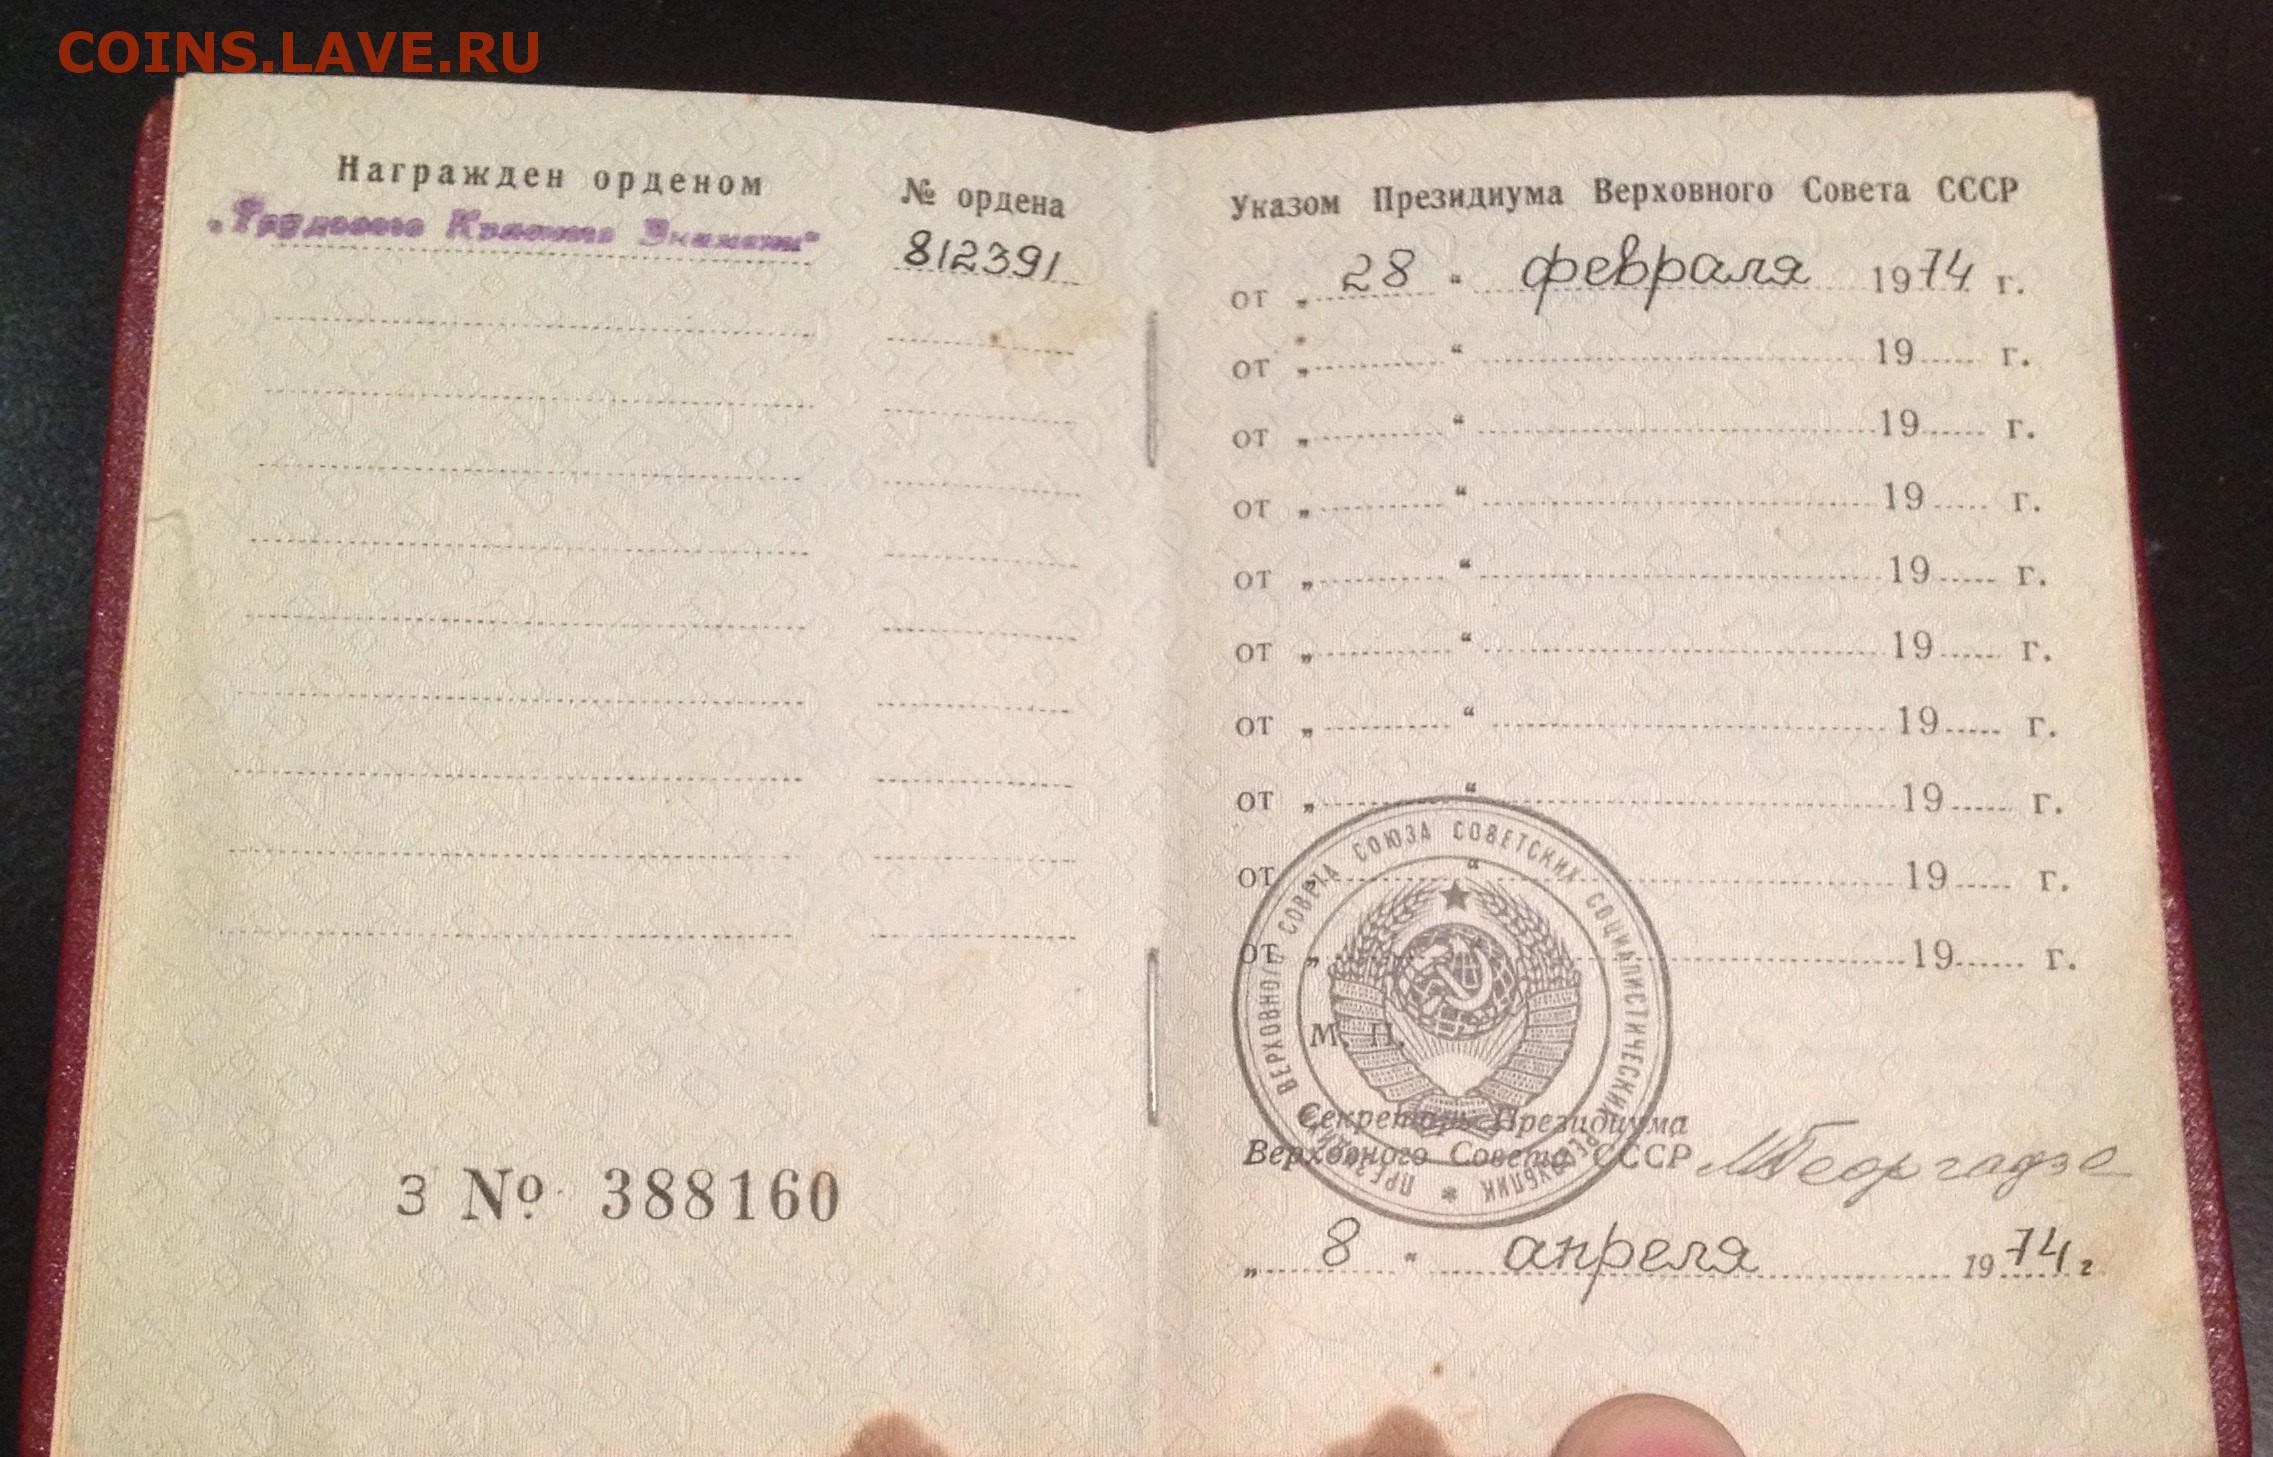 COINS.LAVE.RU
Награжден орденом
„Трудового Красного Знамени“
№ ордена
812391
З № 388160
Указом Президиума Верховного Совета СССР
от „ 28 “ февраля 1974 г.
от „ “ 19 г.
от „ “ 19 г.
от „ “ 19 г.
от „ “ 19 г.
от „ “ 19 г.
от „ “ 19 г.
от „ “ 19 г.
от „ “ 19 г.
от „ “ 19 г.
ПРЕЗИДИУМ ВЕРХОВНОГО СОВЕТА СОЮЗА СОВЕТСКИХ СОЦИАЛИСТИЧЕСКИХ РЕСПУБЛИК *
М. П.
Секретарь Президиума
Верховного Совета СССР МГеоргадзе
„ 8 “ апреля 1974 г